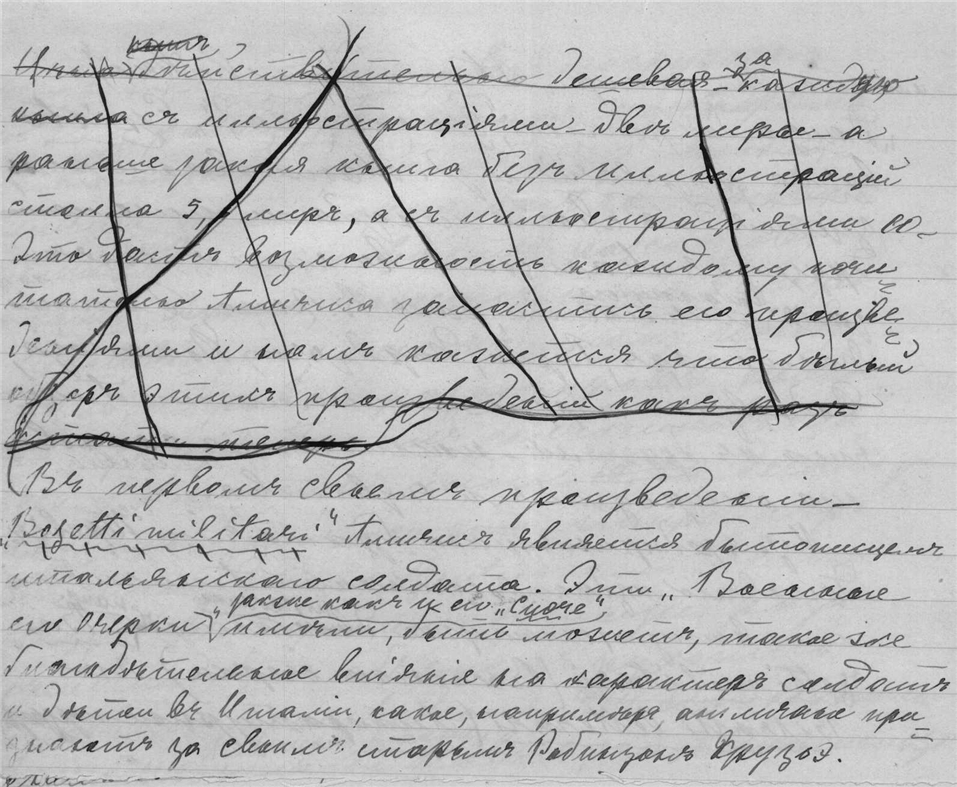 книга
Цѣна дѣйствительно дешевая – за каждую
книга съ иллюстраціями – двѣ лиры – а
раньше такая книга безъ иллюстрацій
стоила 5, лиръ, а съ иллюстраціями 10 –
Это дастъ возможность каждому почи
тателю Амичиса запастись его произве
деніями и намъ кажется что бѣлый
этимъ произведеній какъ разъ
кстати теперь
Въ первомъ своемъ произведеніи –
"Bozetti militari" Амичисъ является бытописцемъ
итальянскаго солдата. Эти „Военные
также какъ и его „Cuore",
его очерки" имѣли, быть можетъ, такое же
благодѣтельное вліяніе на характеръ солдатъ
и дѣтей въ Италіи, какое, напримѣръ, англичане при
знаютъ за своимъ старымъ Робинзонъ Крузоэ.